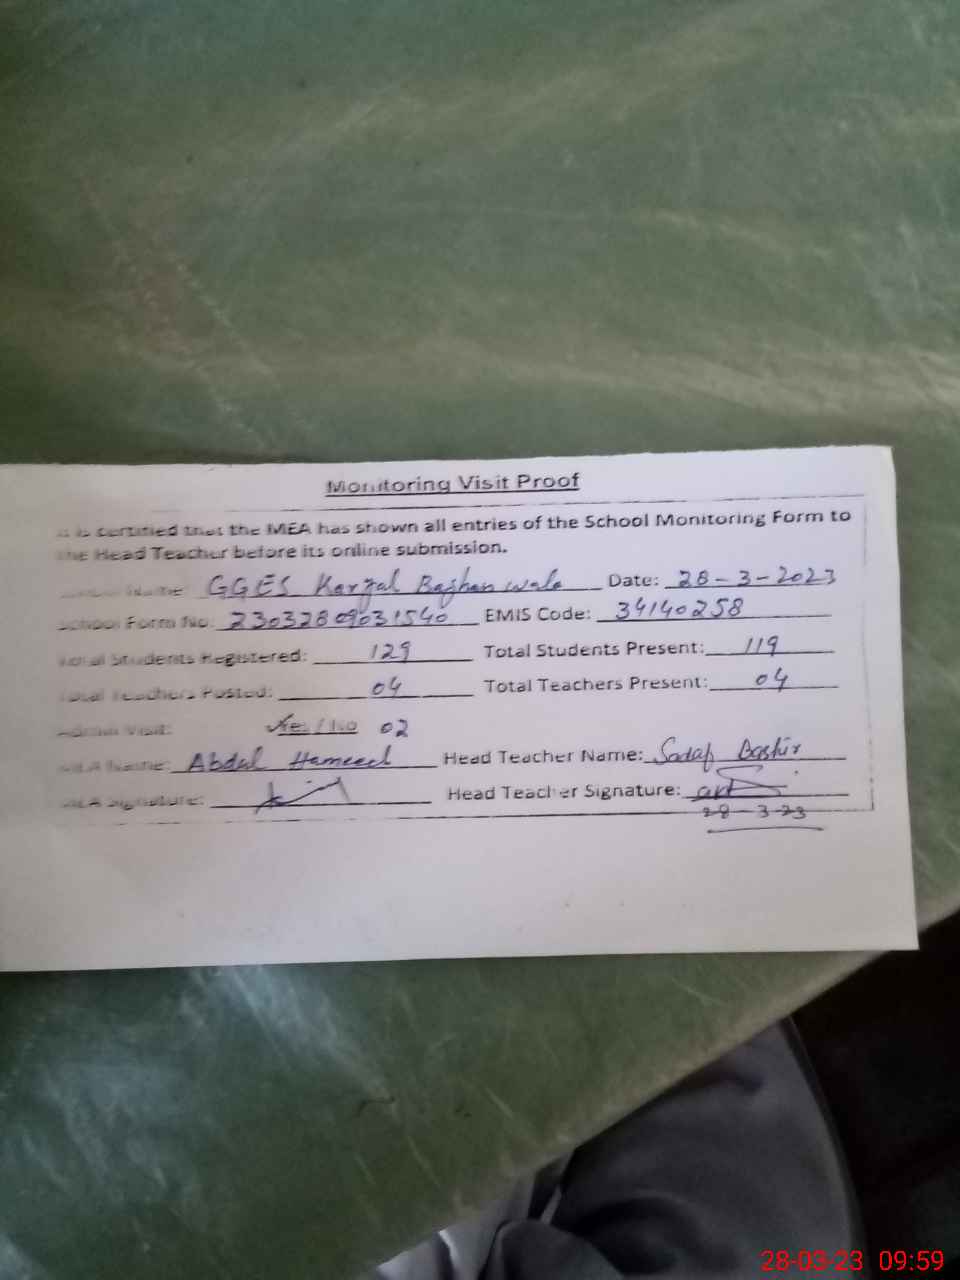 Monitoring Visit Proof
It is certified that the MEA has shown all entries of the School Monitoring Form to
the Head Teacher before its online submission.
Name: GGES Baghanwala Date: 28-3-2023
School Form No: 23032809031540 EMIS Code: 34140258
Total Students Registered: 129 Total Students Present: 119
Total Teachers Posted: 04 Total Teachers Present: 04
Admin Visit: Yes / No 02
MEA Name: Abdul Hameed Head Teacher Name: Sadaf Bashir
MEA Signature: Head Teacher Signature:
28-3-23
28-03-23 09:59